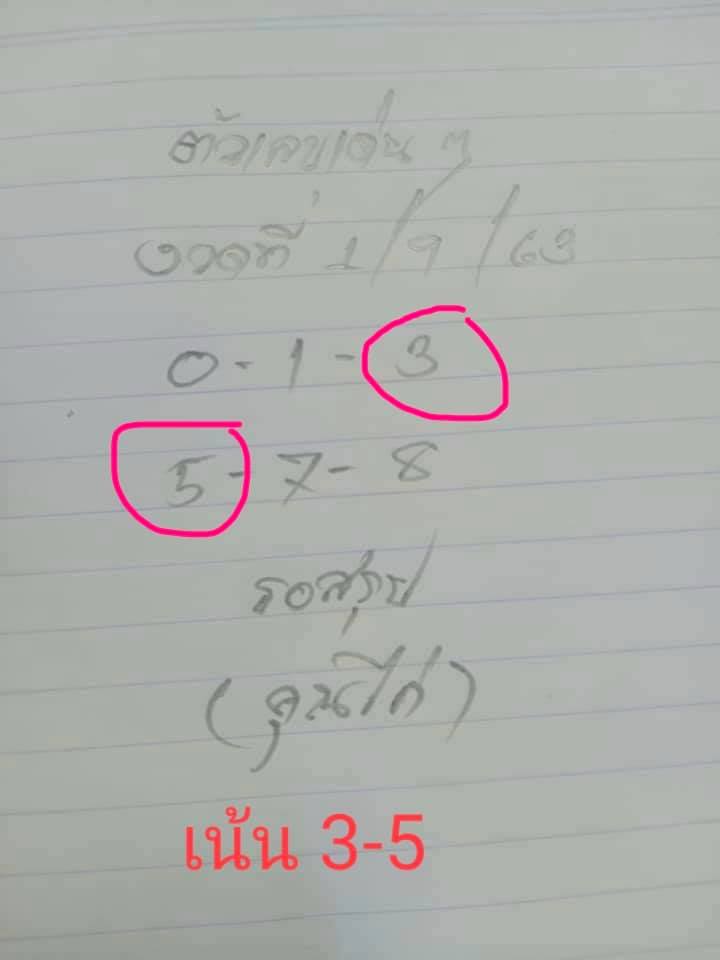 ตัวเลขเด่น ๆ
งวดที่ 1/9/63
0-1-3
5-7-8
รอสรุป
(คุณไก่)
เน้น 3-5